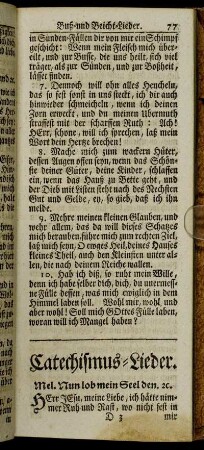 Buß-und Beicht-Lieder. 77
in Sünden-Fällen dir von mir ein Schimpf
geschicht: Wenn mich Fleisch mich über-
eilt, und zur Busse, die uns heilt, sich viel
träger, als zur Sünden, und zur Boßheit,
lässet finden.
7. Dennoch will ohn alles Heucheln,
das so fest in uns steckt, ich dir auch
hinwieder schmeicheln, wenn ich deinen
Zorn erweckt, und du meinen Ubermuth
straffest mit der scharffen Ruth: Ach!
HErr, schone, will ich sprechen, laß mein
Wort dein Hertze brechen!
8. Mache mich zum wackern Hüter,
dessen Augen offen seyn, wenn das Schön-
ste deiner Güter, deine Kinder, schlaffen
ein, wenn das Hauß zu Bette geht, und
der Dieb mit Listen steht nach des Nechsten
Gut und Gelde, ey, so gieb, daß ich ihn
melde.
9. Mehre meinen kleinen Glauben, und
wehr allem, das da will dieses Schatzes
mich berauben, führe mich zum rechten Ziel,
laß mich seyn, O ewges Heil, deines Hauses
kleines Theil, auch den Kleinsten unter al-
len, die nach deinem Reiche wallen.
10. Hab ich diß, so ruht mein Wille,
denn ich habe selber dich, dich, du unermes-
ne Fülle dessen, was mich ewiglich in dem
Himmel laben soll. Wohl mir, wohl und
aber wohl! Soll mich GOttes Fülle laben,
woran will ich Mangel haben?
Catechismus-Lieder.
Mel. Nun lob mein Seel den, ec.
HErr JEsu, meine Liebe, ich hätte nim-
mer Ruh und Rast, wo nicht fest in
D 3 mir